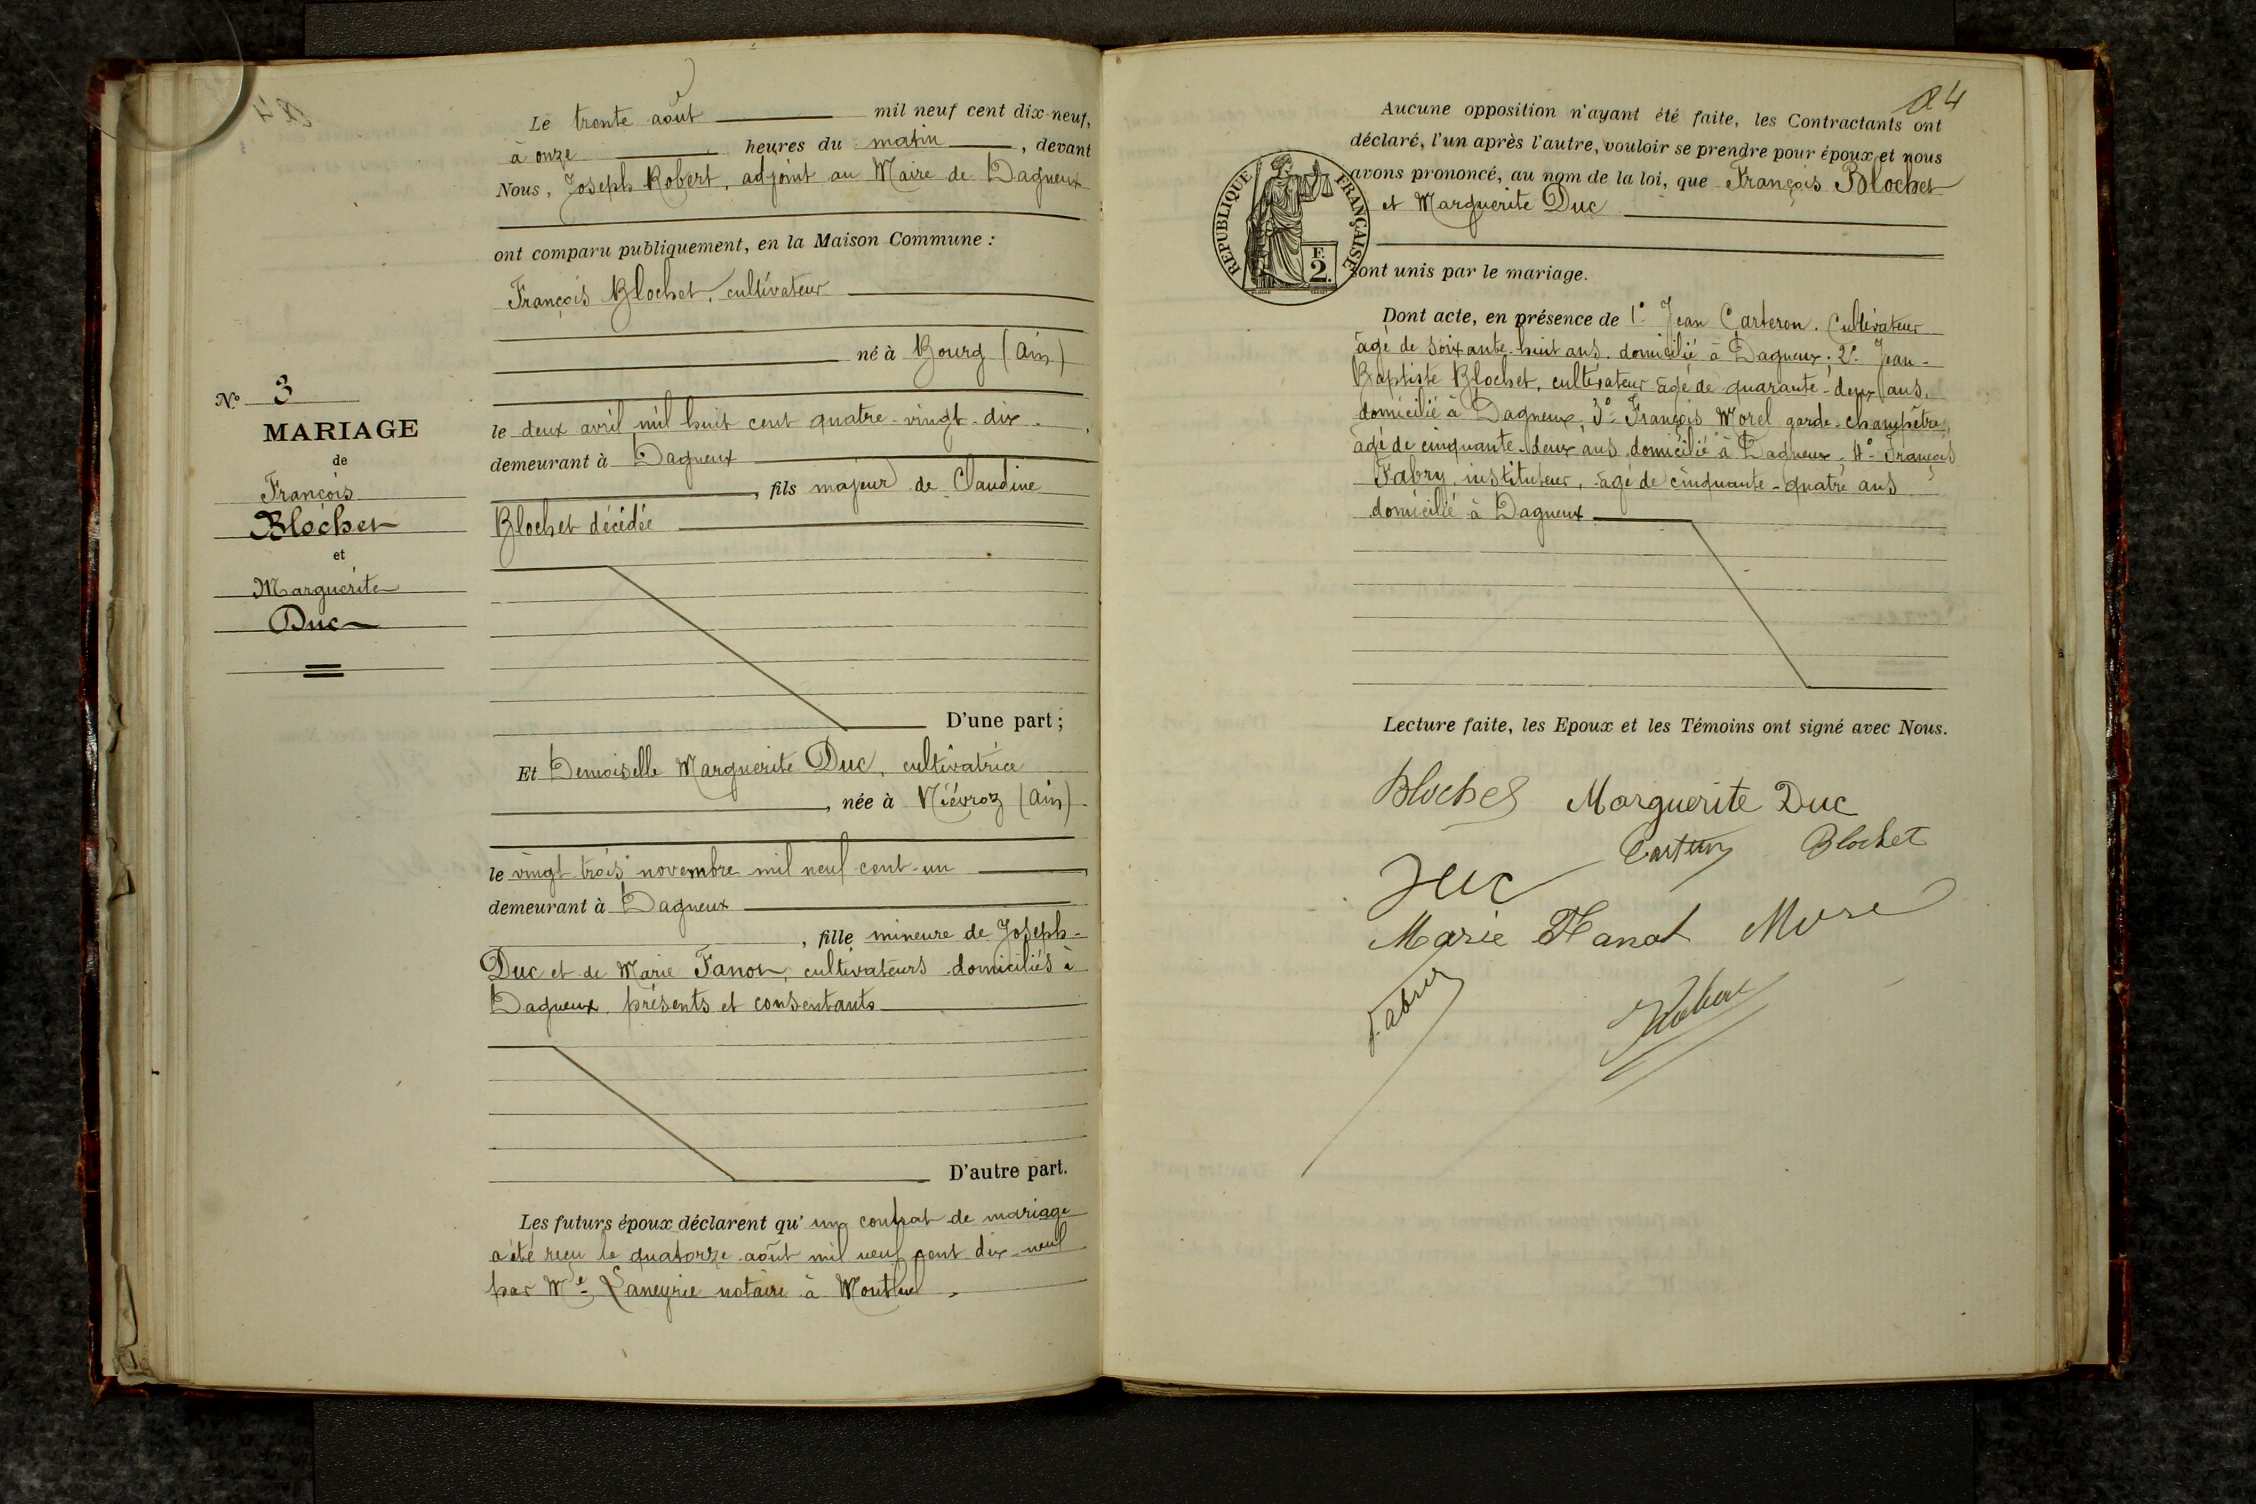 Le trente août mil neuf cent dix-neuf,
à onze heures du matin, devant
Nous, Joseph Robert, adjoint au Maire de Dagneux
ont comparu publiquement, en la Maison Commune :
François Blochet, cultivateur
né à Bourg (Ain)
le deux avril mil huit cent quatre-vingt-dix
demeurant à Dagneux
, fils majeur de Claudine
Blochet décédée
D'une part ;
Et Demoiselle Marguerite Duc, cultivatrice
, née à Niévroz (Ain)
le vingt trois novembre mil neuf cent un
demeurant à Dagneux
, fille mineure de Joseph
Duc et de Marie Fanot, cultivateurs domiciliés à
Dagneux, présents et consentants
D'autre part.
Les futurs époux déclarent qu'un contrat de mariage
a été reçu le quatorze août mil neuf cent dix-neuf
par Me Laneyrie notaire à Montluel.
No 3
MARIAGE
de
François
Blochet
et
Marguerite
Duc
24
Aucune opposition n'ayant été faite, les Contractants ont
déclaré, l'un après l'autre, vouloir se prendre pour époux et nous
avons prononcé, au nom de la loi, que François Blochet
et Marguerite Duc
sont unis par le mariage.
REPUBLIQUE FRANÇAISE
F. 2
Dont acte, en présence de 1° Jean Carteron, Cultivateur
âgé de soixante-huit ans, domicilié à Dagneux; 2° Jean-
Baptiste Blochet, cultivateur âgé de quarante-deux ans,
domicilié à Dagneux; 3° François Morel garde-champêtre,
âgé de cinquante-deux ans domicilié à Dagneux; 4° François
Fabry, instituteur, âgé de cinquante-quatre ans
domicilié à Dagneux
Lecture faite, les Epoux et les Témoins ont signé avec Nous.
Blochet Marguerite Duc
Carteron Blochet
Duc
Marie Fanot Morel
F. Fabry
Robert